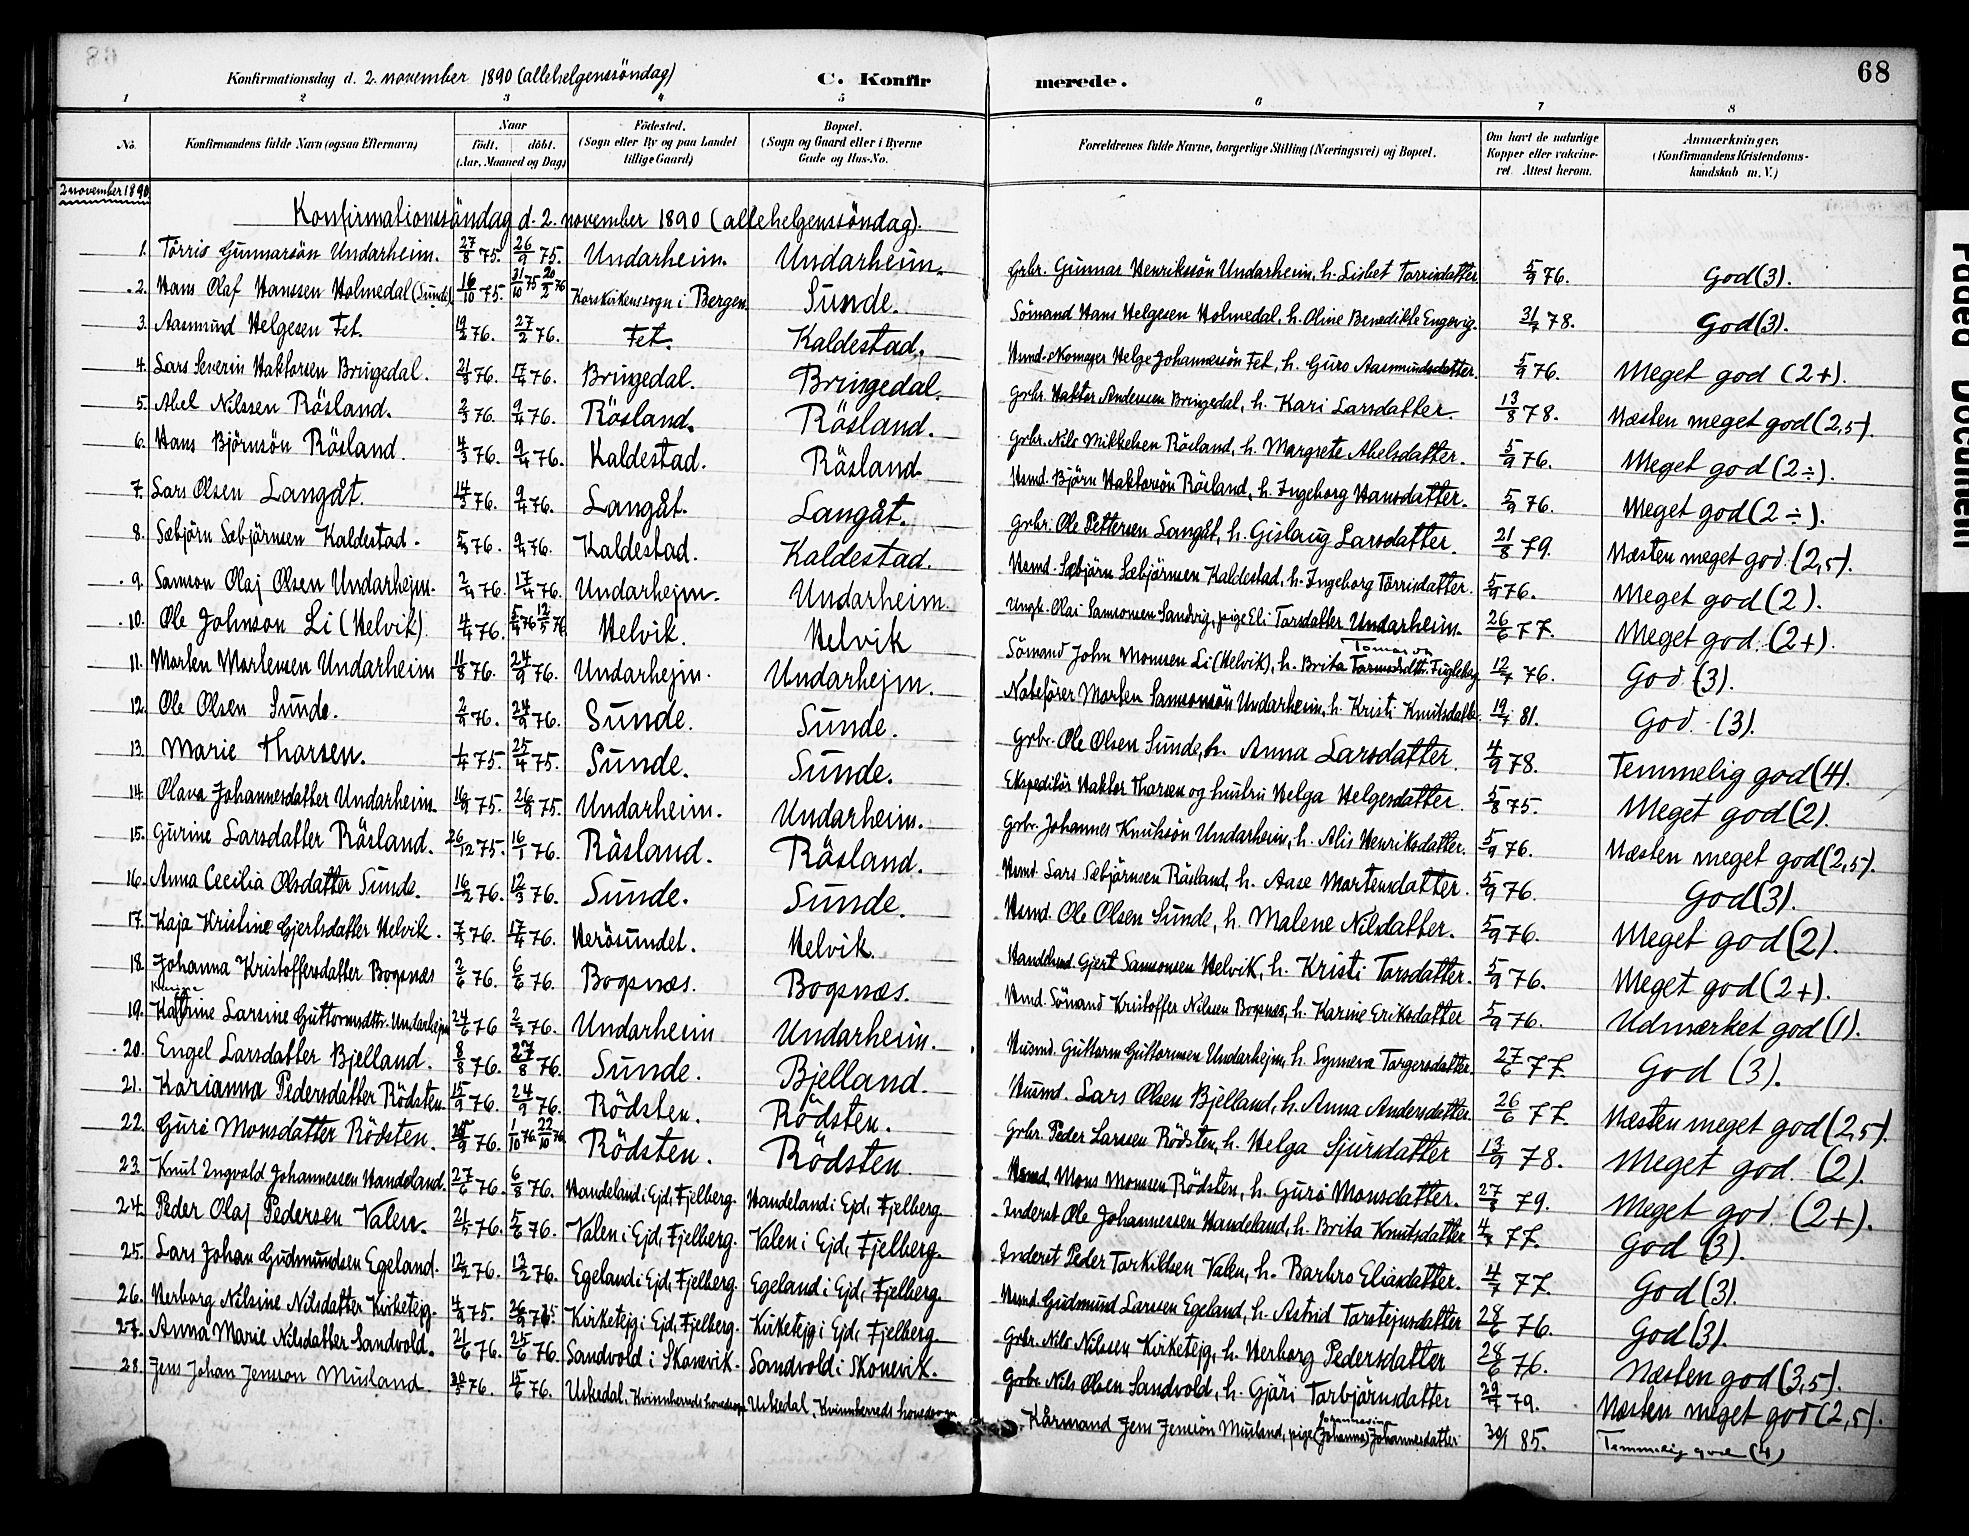 68
Konfirmationsdag d. 2. november 1890 (allehelgenssöndag)
C. Konfirmerede.
1 2 3 4 5 6 7 8
No. Konfirmandens fulde Navn (ogsaa Efternavn) Naar födt. döbt. (Aar, Maaned og Dag) Födested. (Sogn eller By og paa Landet tillige Gaard) Bopæl. (Sogn og Gaard eller i Byerne Gade og Hus-No. Forældrenes fulde Navne, borgerlige Stilling (Næringsvei) og Bopæl. Om havt de naturlige Kopper eller vakcineret. Attest herom. Anmærkninger. (Konfirmandens Kristendomskundskab m. V.)
2 november 1890
Konfirmationssöndag d. 2. november 1890 (allehelgenssöndag).
1. Törris Gunnarsön Undarheim. 27/8 75. 26/9 75. Undarheim. Undarheim. Grbr. Gunnar Henriksön Undarheim, h. Lisbet Torrisdatter 5/9 76. God (3).
2. Hans Olaf Hanssen Holmedal (Sunde) 16/10 75. 31/10 75 20/2 76 Korskirkens sogn i Bergen. Sunde. Sömand Hans Helgesen Holmedal, h. Oline Benedikte Engevig. 31/7 78. God (3).
3. Aasmund Helgesen Fet. 19/2 76. 27/2 76. Fet. Kaldestad. Helge Johannessön Fet, h. Guro Aasmundsdatter. 5/9 76. Meget god (2+).
4. Lars Severin Haktorsen Bringedal. 21/3 76. 17/4 76. Bringedal. Bringedal. Grbr. Haktor Andersen Bringedal, h. Kari Larsdatter. 13/8 78. Næsten meget god (2,5).
5. Abel Nilssen Rösland. 2/3 76. 9/4 76. Rösland. Rösland. Grbr. Nils Mikkelsen Rösland, h. Margrete Abelsdatter. 5/9 76. Meget god (2÷).
6. Hans Björnsön Rösland. 4/3 76. 9/4 76. Kaldestad. Rösland. Hsmd. Björn Haktorsön Rösland, h. Ingeborg Hansdatter. 5/9 76. Meget god (2÷).
7. Lars Olsen Langåt. 14/3 76. 9/4 76. Langåt. Langåt. Grbr. Ole Pettersen Langåt, h. Gislaug Larsdatter. 21/8 79. Næsten meget god (2,5).
8. Sæbjörn Sæbjörnsen Kaldestad. 5/3 76. 9/4 76. Kaldestad. Kaldestad. Hsmd. Sæbjörn Sæbjörnsen Kaldestad, h. Ingeborg Törrisdatter. 5/9 76. Meget god (2).
9. Samson Olaj Olsen Undarhejm. 2/4 76. 17/4 76. Undarhejm. Undarheim. Ungk. Olai Samsonsen Sandvig, pige Eli Torsdatter Undarheim. 26/6 77. Meget god. (2+).
10. Ole Johnson Li (Helvik). 4/4 76. 5/4 76 12/5 76 Helvik. Helvik Sömand John Monsen Li (Helvik), h. Brita Fugleberg 12/7 76. God. (3).
11. Morten Mortensen Undarheim 11/8 76. 24/9 76. Undarhejm. Undarhejm. Notefører Morten Samsonsön Undarheim, h. Kristi Knutsdatter. 19/7 81. God. (3).
12. Ole Olsen Sunde. 2/9 76. 24/9 76. Sunde. Sunde. Grbr. Ole Olsen Sunde, h. Anna Larsdatter. 4/9 78. Temmelig god (4).
13. Marie Thorsen. 1/4 75. 25/4 75. Sunde. Sunde. Ekspeditör Haktor Thorsen og hustru Helga Helgesdatter. 5/8 75. Meget god (2).
14. Olava Johannesdatter Undarheim. 16/9 75. 26/9 75. Undarheim. Undarheim. Grbr. Johannes Knutsön Undarheim, h. Alis Henriksdatter. 5/9 76. Næsten meget god (2,5).
15. Gurine Larsdatter Rösland. 26/12 75. 16/1 76. Rösland. Rösland. Hsmd. Lars Sæbjörnsen Rösland, h. Aase Mortensdatter. 5/9 76. God (3).
16. Anna Cecilia Olsdatter Sunde. 16/2 76. 12/3 76. Sunde. Sunde. Hsmd. Ole Olsen Sunde, h. Malene Nilsdatter. 5/9 76. Meget god (2).
17. Kaja Kristine Gjertsdatter Helvik. 7/3 76. 17/4 76. Herösundet. Helvik. Gjert Samsonsen Helvik, h. Kristi Torsdatter. 5/9 76. Meget god (2+).
18. Johanna Kristoffersdatter Bogsnæs 2/6 76. 6/6 76. Bogsnæs. Bogsnæs. Hsmd. Sömand Kristoffer Nilssen Bogsnæs, h. Karine Eriksdatter 5/9 76. Udmærket god (1).
19. Katrine Larsine Guttormsdtr. Undarhejm 24/6 76 2/7 76. Undarheim Undarheim. Husmd. Guttorm Guttormsen Undarhejm, h. Synneva Torgersdatter. 27/6 77. God (3).
20. Engel Larsdatter Bjelland. 8/8 76. 27/8 76. Sunde. Bjelland. Husmd. Lars Olsen Bjelland, h. Anna Andersdatter. 26/6 77. Næsten meget god (2,5).
21. Karianna Pedersdatter Rödsten. 15/9 76. 24/9 76. Rödsten. Rödsten. Grbr. Peder Larssen Rödsten, h. Helga Sjursdatter 13/9 78. Meget god. (2).
22. Guro Monsdatter Rödsten. 76. 1/10 76. 22/10 76. Rödsten. Rödsten. Hsmd. Mons Monssen Rödsten, h. Guro Monsdatter. 27/8 79. Meget god. (2+).
23. Knut Ingvald Johannessen Handeland. 27/6 76. 6/8 76. Handeland i Ejd, Fjelberg. Handeland i Ejd, Fjelberg. Inderst Ole Johannessen Handeland, h. Brita Knutsdatter 4/7 77. God (3).
24. Peder Olaj Pedersen Valen. 21/5 76. 5/6 76. Valen i Ejd, Fjelberg. Valen i Ejd, Fjelberg. Inderst Peder Torkildsen Valen, h. Barbro Eliasdatter. 4/7 77. God (3).
25. Lars Johan Gudmundsen Egeland. 12/2 76. 13/2 76. Egeland i Ejd, Fjelberg. Egeland i Ejd, Fjelberg. Hsmd. Gudmund Larssen Egeland, h. Astrid Torstejnsdatter 28/6 76. God (3).
26. Herborg Nilsine Nilsdatter Kirketejg. 4/9 75. 26/9 75. Kirketejg i Ejd, Fjelberg. Kirketejg i Ejd, Fjelberg. Grbr. Nils Nilssen Kirketejg, h. Herborg Pedersdatter 28/6 76. Næsten god (3,5).
27. Anna Marie Nilsdatter Sandvold. 21/6 76. 25/6 76. Sandvold i Skonevik. Sandvold i Skonevik. Grbr. Nils Olsen Sandvold, h. Gjöri Torbjörnsdatter 29/7 79. Næsten meget god (2,5).
28. Jens Johan Jensson Musland. 76. 15/6 76. Uskedal, Kvinnherreds hovedsogn Uskedal, Kvinnherreds hovedsogn Kårmand Jens Jensön Musland, pige (Johanna) Johannesdatter 85. Temmelig god (4)
Faded Document